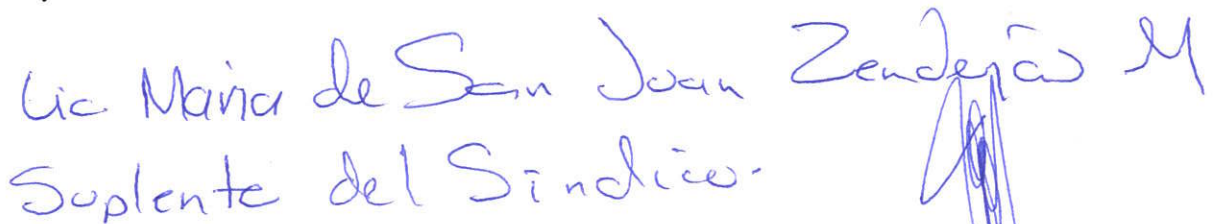 Lic Maria de San Juan Zendejas M
Suplente del Síndico.